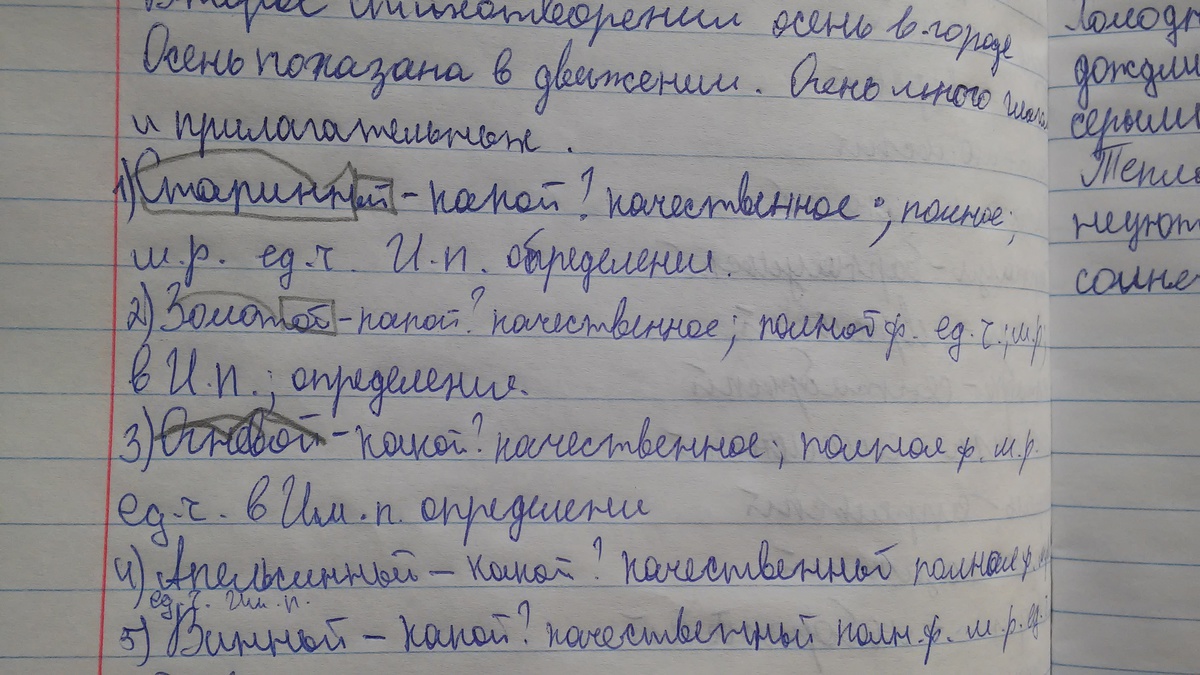 Второе стихотворении осень в городе
Осень показана в движении. Очень много
и прилагательных.
1) Старинный - какой? качественное; полное;
м.р. ед.ч. И.п. определении.
2) Золотой - какой? качественное; полной ф. ед.ч.; м.р.
в И.п.; определения.
3) Огновой - какой? качественное; полная ф. м.р.
ед.ч. в Им.п. определени
4) Апельсинный - какой? качественной полная ф.
ед.ч. Им.п.
5) Винной - какой? качественный полн.ф. м.р. ед.
дождли
серыми
Тепло
неуют
солне